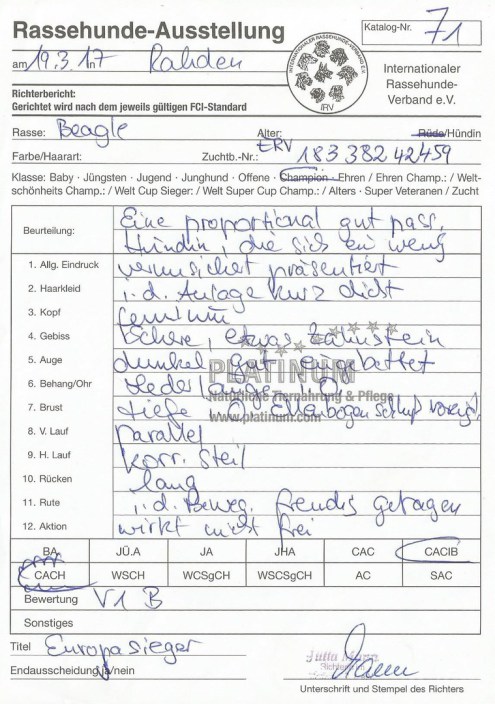 Rassehunde-Ausstellung
Katalog-Nr. 71
am 19.3.17 in Rahden
INTERNATIONALER RASSEHUNDE-VERBAND E.V.
IRV
Internationaler
Rassehunde-
Verband e.V.
Richterbericht:
Gerichtet wird nach dem jeweils gültigen FCI-Standard
Rasse: Beagle Alter: Rüde/Hündin
Farbe/Haarart: Zuchtb.-Nr.: ERV 183 382 42459
Klasse: Baby · Jüngsten · Jugend · Junghund · Offene · Champion · Ehren / Ehren Champ.: / Welt-
schönheits Champ.: / Welt Cup Sieger: / Welt Super Cup Champ.: / Alters · Super Veteranen / Zucht
Beurteilung: Eine proportional gut pass.
Hündin, die sich ein wenig
1. Allg. Eindruck verunsichert präsentiert
2. Haarkleid i.d. Anlage kurz dicht
3. Kopf feminin
4. Gebiss Schere, etwas Zahnstein
5. Auge dunkel gut eingebettet
6. Behang/Ohr
7. Brust tiefe i.O. Ellenbogen
8. V. Lauf parallel
9. H. Lauf korr. steil
10. Rücken lang
11. Rute i.d. Beweg. freudig getragen
12. Aktion wirkt nicht frei
PLATINUM
Natürliche Tiernahrung & Pflege
www.platinum.com
BA JÜ.A JA JHA CAC CACIB
CACH WSCH WCSgCH WSCSgCH AC SAC
Bewertung V1 B
Sonstiges
Titel Europasieger
Endausscheidung ja/nein
Jutta
Unterschrift und Stempel des Richters